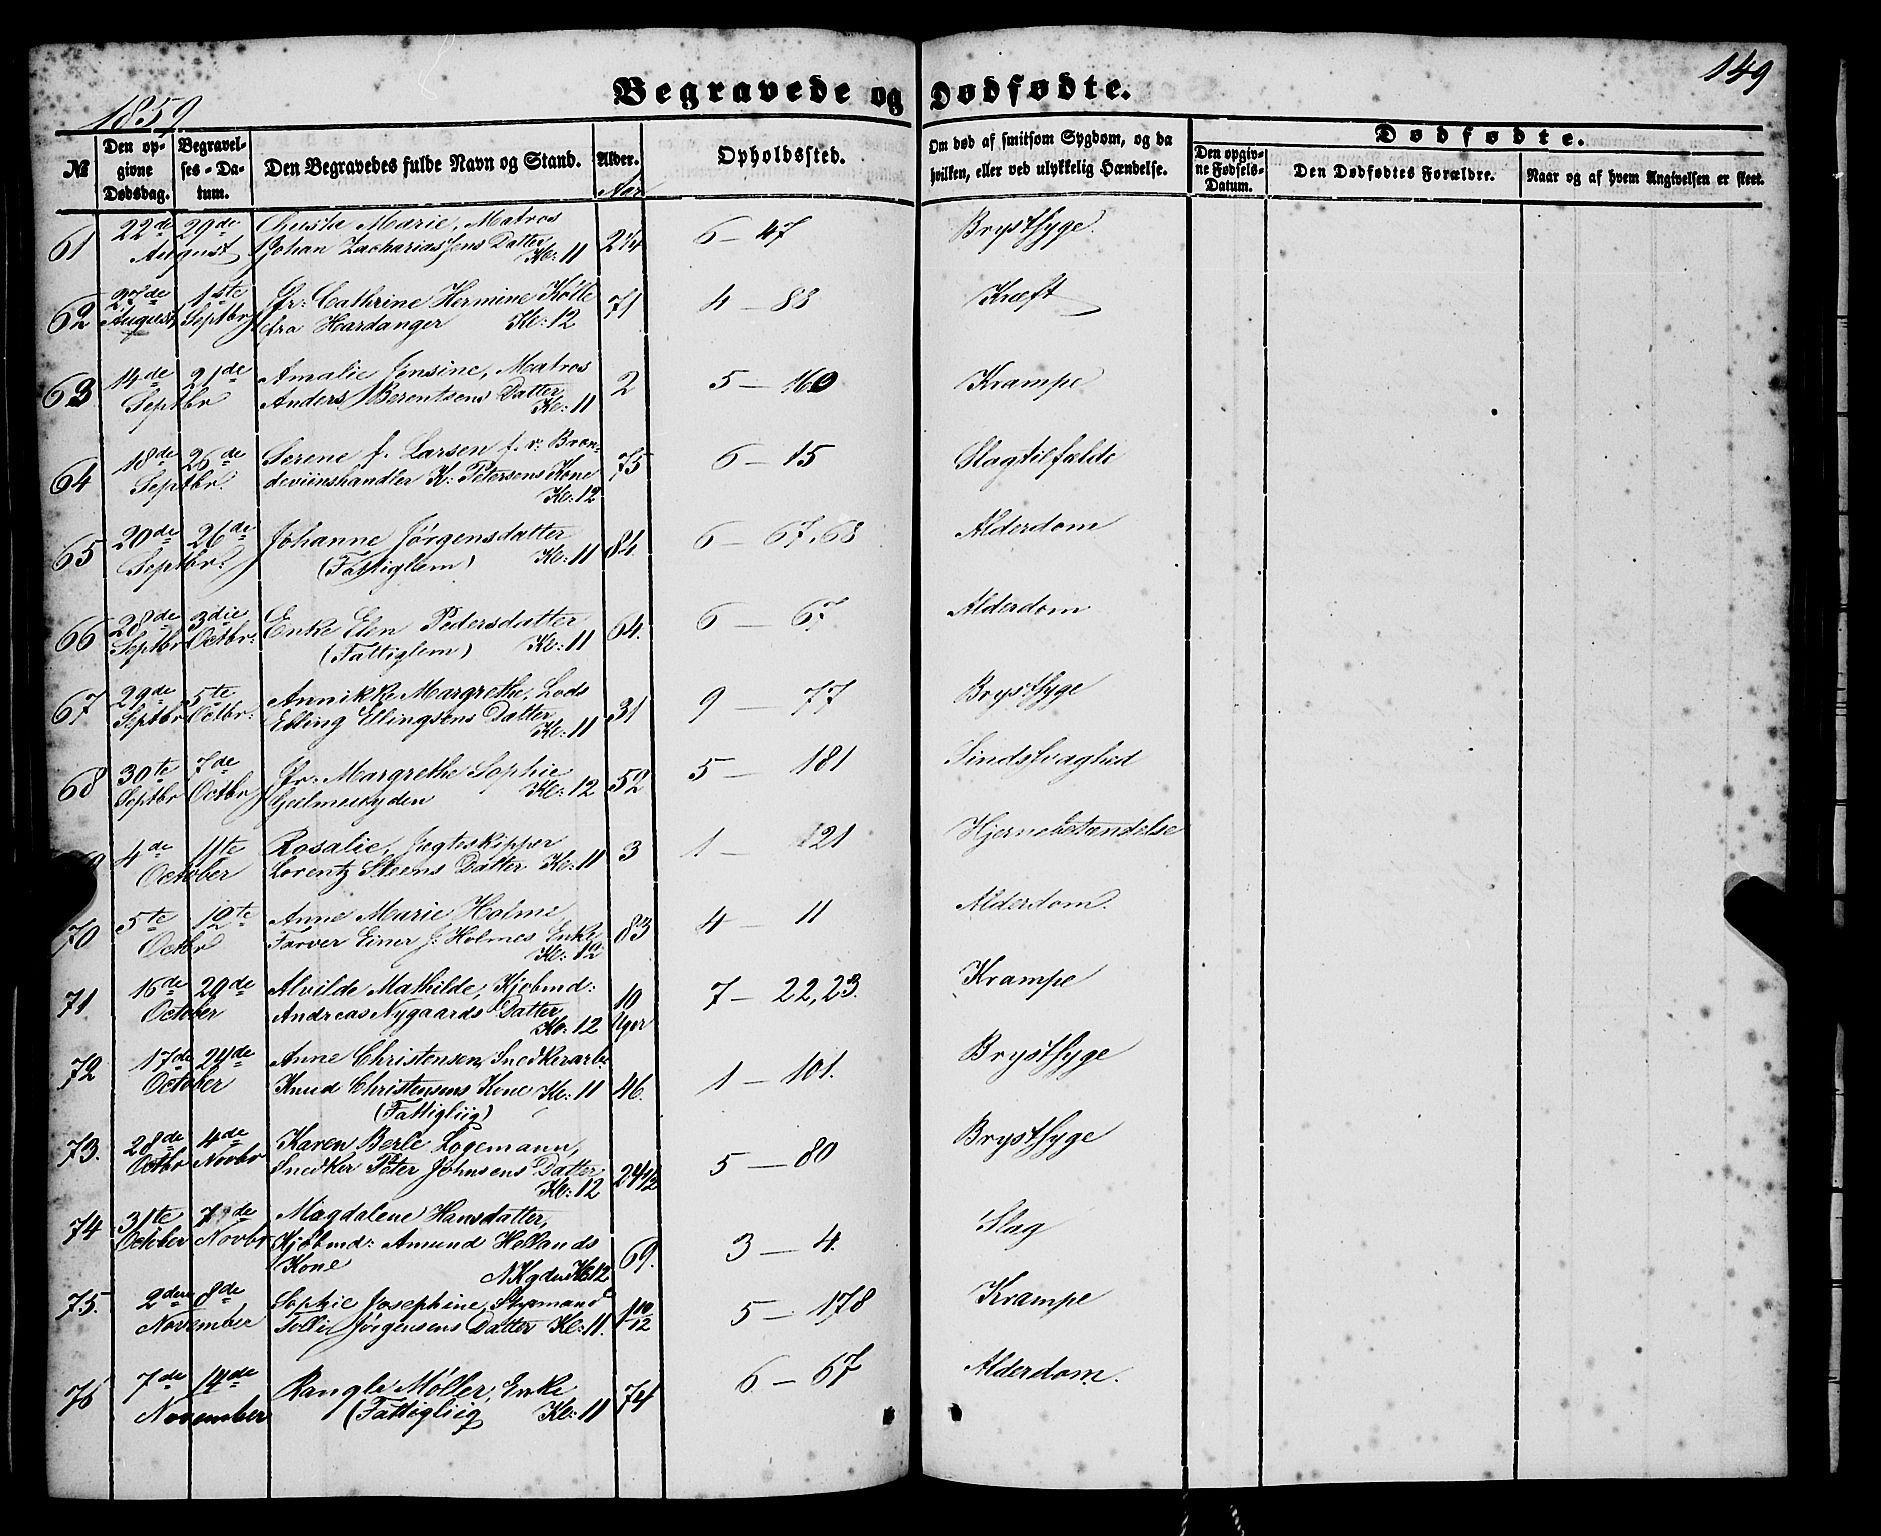 149
Begravede og Dødfødte.
1859
№
Den opgivne Dødsdag.
Begravelses-Datum.
Den Begravedes fulde Navn og Stand.
Alder.
Aar
Opholdssted.
Om død af smitsom Sygdom, og da hvilken, eller ved ulykkelig Hændelse.
Dødfødte.
Den opgivne Fødsels-Datum.
Den Dødfødtes Forældre.
Naar og af hvem Angivelsen er skeet.
61 22de 29de Marie, Matros 6 — 47 Brystsyge.
August Johan Zachariassens Datter Kl: 11
62 27de 1ste Jfr: Cathrine Hermine Kølle 71 4 — 88 Kræft
August Septbr fra Hardanger Kl: 12
63 14de 21de Amalie Jensine, Matros 2 5 — 160 Krampe
Septbr Anders Berentsens Datter
Kl: 11
64 18de 26de Serene f. Larsen f. v: Bræn- 75 6 — 15 Slagtilfælde
Septbr. deviinshandler K: Petersens Kone
Kl: 12
65 20de 26de Johanne Jørgensdatter 84. 6 — 67,68 Alderdom
Septbr. (Fattiglem) Kl: 11
66 28de 3die Enke Elen Pedersdatter 64. 6 — 67. Alderdom
Septbr Octbr: (Fattiglem) Kl: 11
67 29de 5te Annikke Margrethe, Lods 31 9 — 77 Brystsyge
Septbr Octbr: Elling Ellingsens Datter
Kl: 11
68 30te 7de Jfr. Margrethe Sophie 52 5 — 181 Sindssvaghed
Septbr Octbr Gjelmeyden Kl: 12
4de 11te Rosalie, Jagteskipper 3 1 — 121 Hjernebetændelse
October Lorentz Steens Datter Kl: 11
70 5te 12te Anne Marie Holme, 83 4 — 11 Alderdom.
Octbr Farver Einer J: Holmes Enke
Kl: 12
71 16de 20de Alvilde Mathilde, Kjøbmd: 10 7 — 22,23. Krampe
October Andreas Nygaards Datter Uger
Kl: 12
72 17de 24de Anne Christensen, Snedkerarb: 1 — 101. Brystsyge
October Knud Christensens Kone Kl: 11 46.
(Fattigliig)
73. 28de 4de Karen Berle Logemann, 5 — 80 Brystsyge
Octbr Novbr Snedker Peter Johnsens Datter 24½
Kl: 12
74 31te 7de Magdalene Hansdatter, 69. 3 — 4. Slag
October Novbr Kjøbmd: Amund Hellands
Kone Kl 12
75. 2den 8de Sophie Josephine, Styrmand 1 10/12 5 — 178 Krampe
November Jørgensens Datter Kl: 11.
76 7de 14de Rangle Møller, Enke 74 6 — 67 Alderdom.
November (Fattigliig Kl: 11